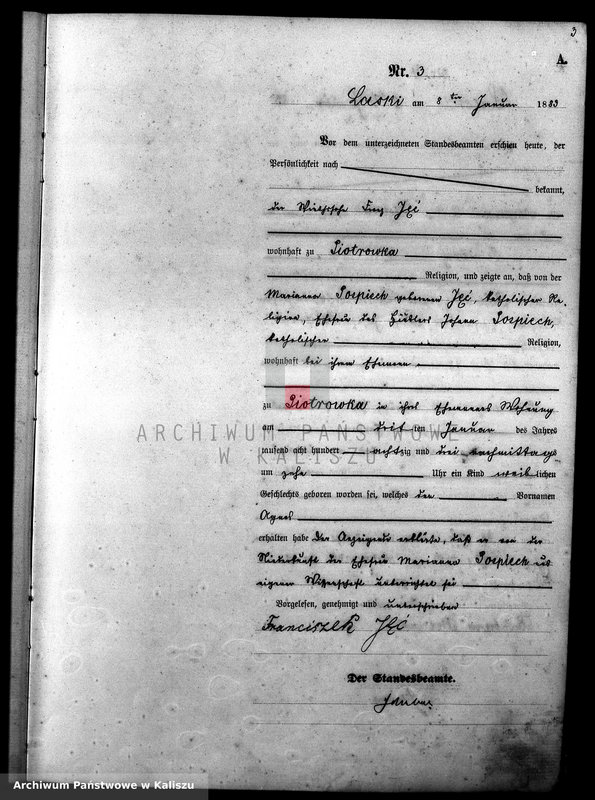 3
A.
Nr. 3
Laski am 8ten Januar 1883
Vor dem unterzeichneten Standesbeamten erschien heute, der
Persönlichkeit nach
bekannt,
der Franz Jęć
wohnhaft zu Piotrowka
Religion, und zeigte an, daß von der
Marianna Pospiech geborenen Jęć, katholischer Re-
ligion, Ehefrau des Häusler Johann Pospiech,
katholischer Religion,
wohnhaft bei ihrem Ehemann
zu Piotrowka in ihres Ehemannes Wohnung
am dritten Januar des Jahres
tausend acht hundert achtzig und drei nachmittags
um zehn Uhr ein Kind weiblichen
Geschlechts geboren worden sei, welches den Vornamen
Agnes
erhalten habe Der Anzeigende erklärte, daß er von der
Niederkunft der Ehefrau Marianna Pospiech aus
eigener Wissenschaft unterrichtet sei
Vorgelesen, genehmigt und unterschrieben
Franciszek Jęć
Der Standesbeamte.
ARCHIWUM PAŃSTWOWE
W KALISZU
Archiwum Państwowe w Kaliszu